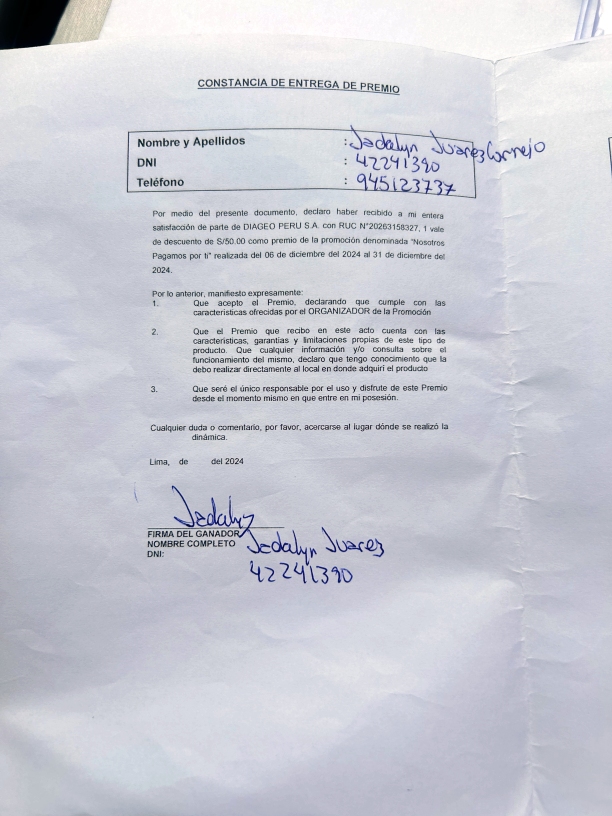 CONSTANCIA DE ENTREGA DE PREMIO
Nombre y Apellidos : Jadalyn Juarez Cornejo
DNI : 42241390
Teléfono : 945123737
Por medio del presente documento, declaro haber recibido a mi entera
satisfacción de parte de DIAGEO PERU S.A. con RUC N°20263158327, 1 vale
de descuento de S/50.00 como premio de la promoción denominada "Nosotros
Pagamos por ti" realizada del 06 de diciembre del 2024 al 31 de diciembre del
2024.
Por lo anterior, manifiesto expresamente:
1. Que acepto el Premio, declarando que cumple con las
características ofrecidas por el ORGANIZADOR de la Promoción
2. Que el Premio que recibo en este acto cuenta con las
características, garantías y limitaciones propias de este tipo de
producto. Que cualquier información y/o consulta sobre el
funcionamiento del mismo, declaro que tengo conocimiento que la
debo realizar directamente al local en donde adquirí el producto
3. Que seré el único responsable por el uso y disfrute de este Premio
desde el momento mismo en que entre en mi posesión.
Cualquier duda o comentario, por favor, acercarse al lugar dónde se realizó la
dinámica.
Lima, de del 2024
FIRMA DEL GANADOR
NOMBRE COMPLETO Jadalyn Juarez
DNI: 42241390